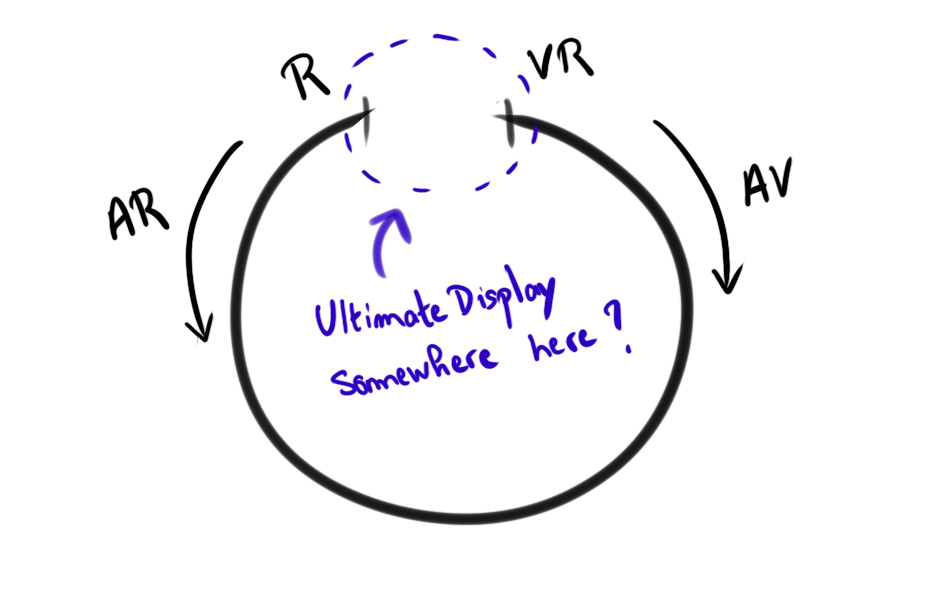 R
VR
AR
AV
Ultimate Display
Somewhere here?